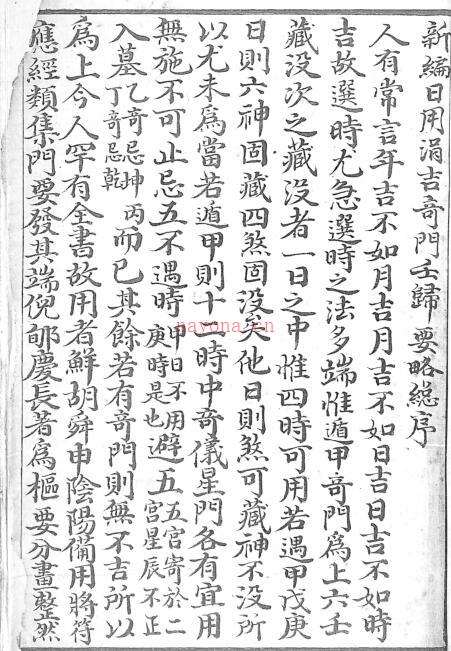 新編日用涓吉奇門五歸要略總序
人有常言年吉不如月吉月吉不如日吉日吉不如時
吉故選時尤急選時之法多端惟遁甲奇門為上六壬
藏没次之藏没者一日之中惟四時可用若遇甲戊庚
日則六神固藏四煞固没矣他日則煞可藏神不没所
以尤未為當若遁甲則十二時中奇儀星門各有宜用
無施不可止忌五不遇時甲日不用庚時是也避五五宮寄於二宮星辰不正
入墓乙奇忌坤丙丁奇忌乾而已其餘若有奇門則無不吉所以
為上今人罕有全書故用者鮮胡舜申陰陽備用將符
應經類集門要發其端倪郇慶長著為樞要分畫整然
nayona.cn